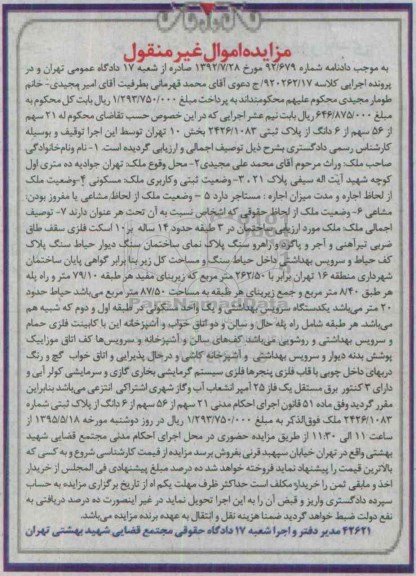 مزایده اموال غیر منقول
به موجب دادنامه شماره ۹۲/۶۷۹ مورخ ۱۳۹۲/۷/۲۸ صادره از شعبه ۱۷ دادگاه عمومی تهران و در
پرونده اجرایی کلاسه ۹۲۰۲۶۲/۱۷/ج دعوی آقای محمد قهرمانی بطرفیت آقای امیر مجیدی- خانم
طومار مجیدی محکوم علیهم محکومنداند به پرداخت مبلغ ۱/۲۹۳/۷۵۰/۰۰۰ ریال بابت کل محکوم به
مبلغ ۶۴۶/۸۷۵/۰۰۰ ریال بابت نیم عشر اجرایی که در این خصوص حسب تقاضای محکوم له ۲۱ سهم
از ۵۶ سهم از ۶ دانگ از پلاک ثبتی ۲۴۲۶/۱۰۸۳ بخش ۱۰ تهران توسط این اجرا توقیف و بوسیله
کارشناس رسمی دادگستری بشرح ذیل توصیف اجمالی و ارزیابی گردیده است. ۱- نام ونام خانوادگی
صاحب ملک: وراث مرحوم آقای محمد علی مجیدی ۲- محل وقوع ملک: تهران جوادیه ده متری اول
کوچه شهید آیت اله سیفی پلاک ۲۱ . ۳- وضعیت ثبتی وکاربری ملک: مسکونی ۴-وضعیت ملک
از لحاظ اجاره و مدت میزان اجاره : مستاجر دارد ۵ - وضعیت ملک از لحاظ مشاعی یا مفروز بودن:
مشاعی ۶- وضعیت ملک از لحاظ حقوقی که اشخاص نسبت به آن تحت هر عنوان دارند ۷- توصیف
اجمالی ملک: ملک مورد ارزیابی ساختمان در ۳ طبقه حدود ۱۴ ساله بر ۱۰ اسکلت فلزی سقف طاق
ضربی تیرآهنی و آجر و پاگرد و راهرو سنگ پلاک نمای ساختمان سنگ دیوار حیاط سنگ پلاک
کف حیاط و سرویس بهداشتی داخل حیاط سنگ و مساحت کل زیربنا برابر گواهی پایان ساختمان
شهرداری منطقه ۱۶ تهران برابر با ۲۶۲/۵۰ متر مربع که زیربنای مفید هر طبقه ۷۹/۱۰ متر و راه پله
هر طبق ۸/۴۰ متر مربع و جمع زیربنای هر طبقه به مساحت ۸۷/۵۰ متر مربع می‌باشد حیاط حدود
۲۰ متر می‌باشد یکدستگاه سرویس بهداشتی و یک واحد مسکونی در طبقه اول و دوم که شبیه هم
می‌باشد. هر طبقه شامل راه پله حال و سالن و دو اتاق خواب و آشپزخانه این با کابینت فلزی حمام
و سرویس بهداشتی و روشویی می‌باشد کف‌های سالن و آشپزخانه و سرویس‌ها کف اتاق موزاییک
پوشش بدنه دیوار و سرویس بهداشتی و آشپزخانه کاشی و درحال پذیرایی و اتاق خواب گچ و رنگ
دربهای داخل چوبی با قاب فلزی پنجرها فلزی سیستم گرمایشی بخاری گازی و سرمایشی کولر آبی و
دارای ۳ کنتور برق مستقل یک فاز ۲۵ آمپر انشعاب آب وگاز شهری اشتراکی انتزعی می‌باشد بنابراین
مقرر گردید وفق ماده ۵۱ قانون اجرای احکام مدنی ۲۱ سهم از ۵۶ سهم از ۶ دانگ از پلاک ثبتی شماره
۲۴۲۶/۱۰۸۳ ملک فوق‌الذکر به مبلغ ۱/۲۹۳/۷۵۰/۰۰۰ ریال در روز دوشنبه مورخه ۱۳۹۵/۵/۱۸ از
ساعت ۱۱ الی ۱۱:۳۰ از طریق مزایده حضوری در محل اجرای احکام مدنی مجتمع قضایی شهید
بهشتی واقع در تهران خیابان سپهبد قرنی بفروش برسد مزایده از قیمت کارشناسی شروع و به کسی که
بالاترین قیمت را پیشنهاد نماید فروخته خواهد شد ده درصد مبلغ پیشنهادی فی المجلس از خریدار
اخذ و مابقی ثمن را خریدار مکلف است حداکثر ظرف مهلت یکم اه از تاریخ برگزاری مزایده به حساب
سپرده دادگستری واریز و قبض آن را به این اجرا تحویل نماید در غیر اینصورت ده درصد دریافتی به
نفع دولت ضبط خواهد گردید ضمنا هزینه نقل و انتقال به عهده برنده مزایده می‌باشد.
۴۲۶۲۱ مدیر دفتر و اجرا شعبه ۱۷ دادگاه حقوقی مجتمع قضایی شهید بهشتی تهران